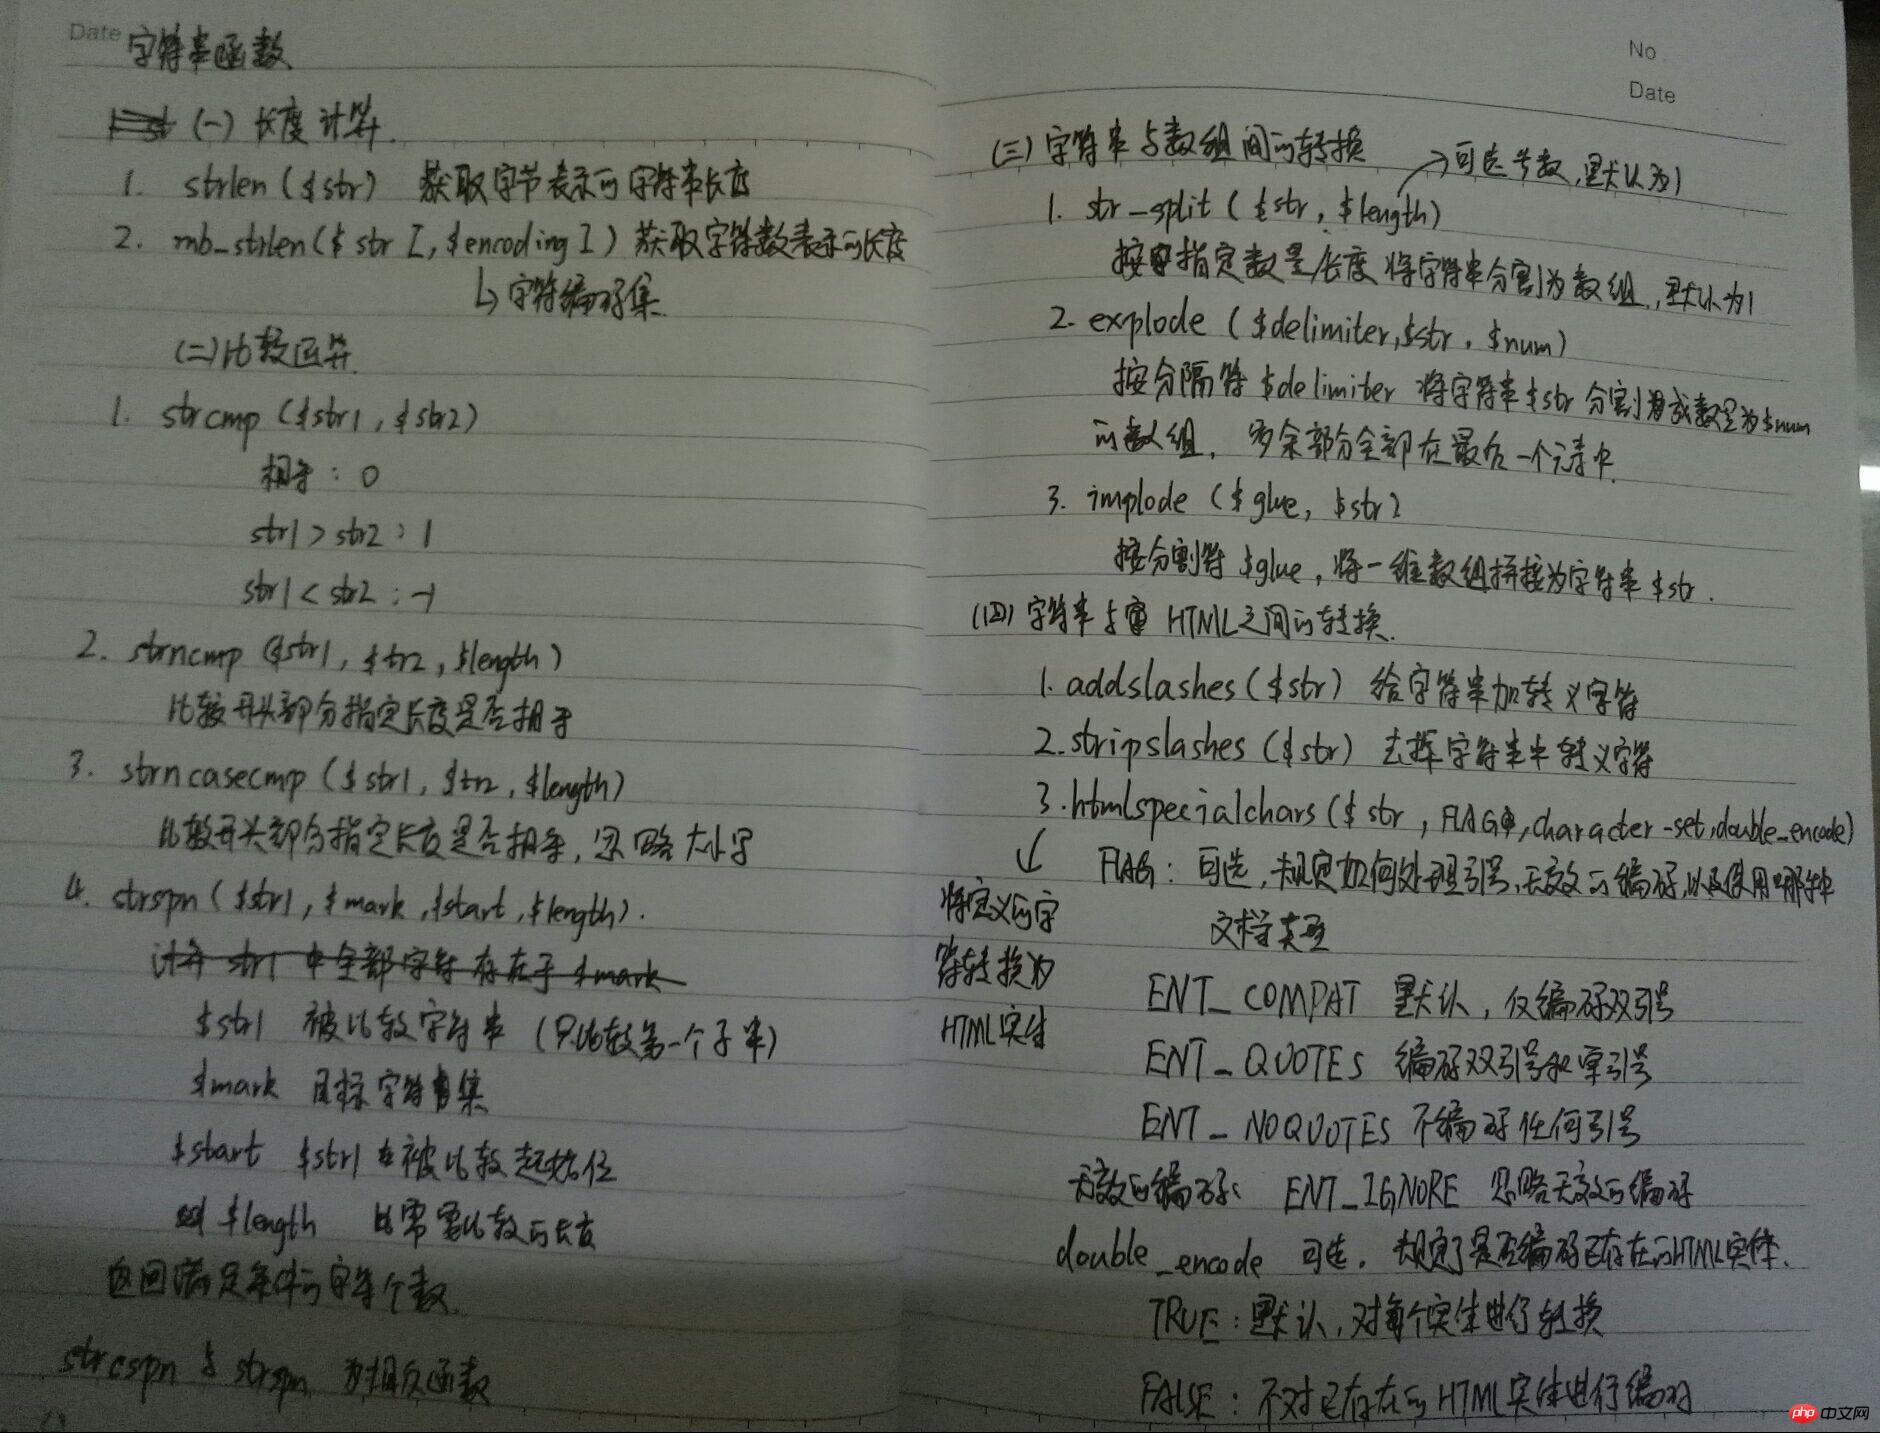 Date
字符串函数
(一) 长度计算.
1. strlen ($str) 获取字节表示的字符串长度
2. mb_strlen($ str [, $encoding ]) 获取字符数表示的长度
↳字符编码集.
(二)比较运算.
1. strcmp ($str1, $str2)
相等: 0
str1 > str2 : 1
str1 < str2 : -1
2. strncmp ($str1, $tr2, $length)
比较开头部分指定长度是否相等
3. strncasecmp ($str1, $tr2, $length)
比较开头部分指定长度是否相等, 忽略大小写
4. strspn ($str1, $mark, $start, $length).
计算 str1 中全部字符存在于 $mark
$str1 被比较字符串 (只比较第一个子串)
$mark 目标字符集
$start $str1 被比较起始位
$length 需比较的长度
返回满足条件的字符个数.
strcspn 与 strspn 为相反函数
No
Date
(三) 字符串与数组间的转换
→可选参数, 默认为1
1. str_split ($str, $length)
按指定数量/长度 将字符串分割为数组, 默认为1
2. explode ($delimiter,$str, $num)
按分隔符 $delimiter 将字符串$str 分割成数量为$num
的数组, 多余部分全部在最后一个元素中.
3. implode ($glue, $str)
按分割符 $glue, 将一维数组拼接为字符串 $str.
(四) 字符串与 HTML之间的转换.
1. addslashes ($str) 给字符串加转义字符
2. stripslashes ($str) 去掉字符串中转义字符
3. htmlspecialchars ($ str, FLAG, character-set,double_encode)
↓ FLAG: 可选, 规定如何处理引号, 无效的编码, 以及使用哪种
文档类型
将定义的字
符转换为
HTML实体
ENT_COMPAT 默认, 仅编码双引号
ENT_QUOTES 编码双引号和单引号
ENT_NOQUOTES 不编码任何引号
无效的编码: ENT_IGNORE 忽略无效的编码
double_encode 可选. 规定了是否编码已存在的HTML实体.
TRUE: 默认, 对每个实体进行转换
FALSE: 不对已存在的 HTML实体进行编码
php 中文网